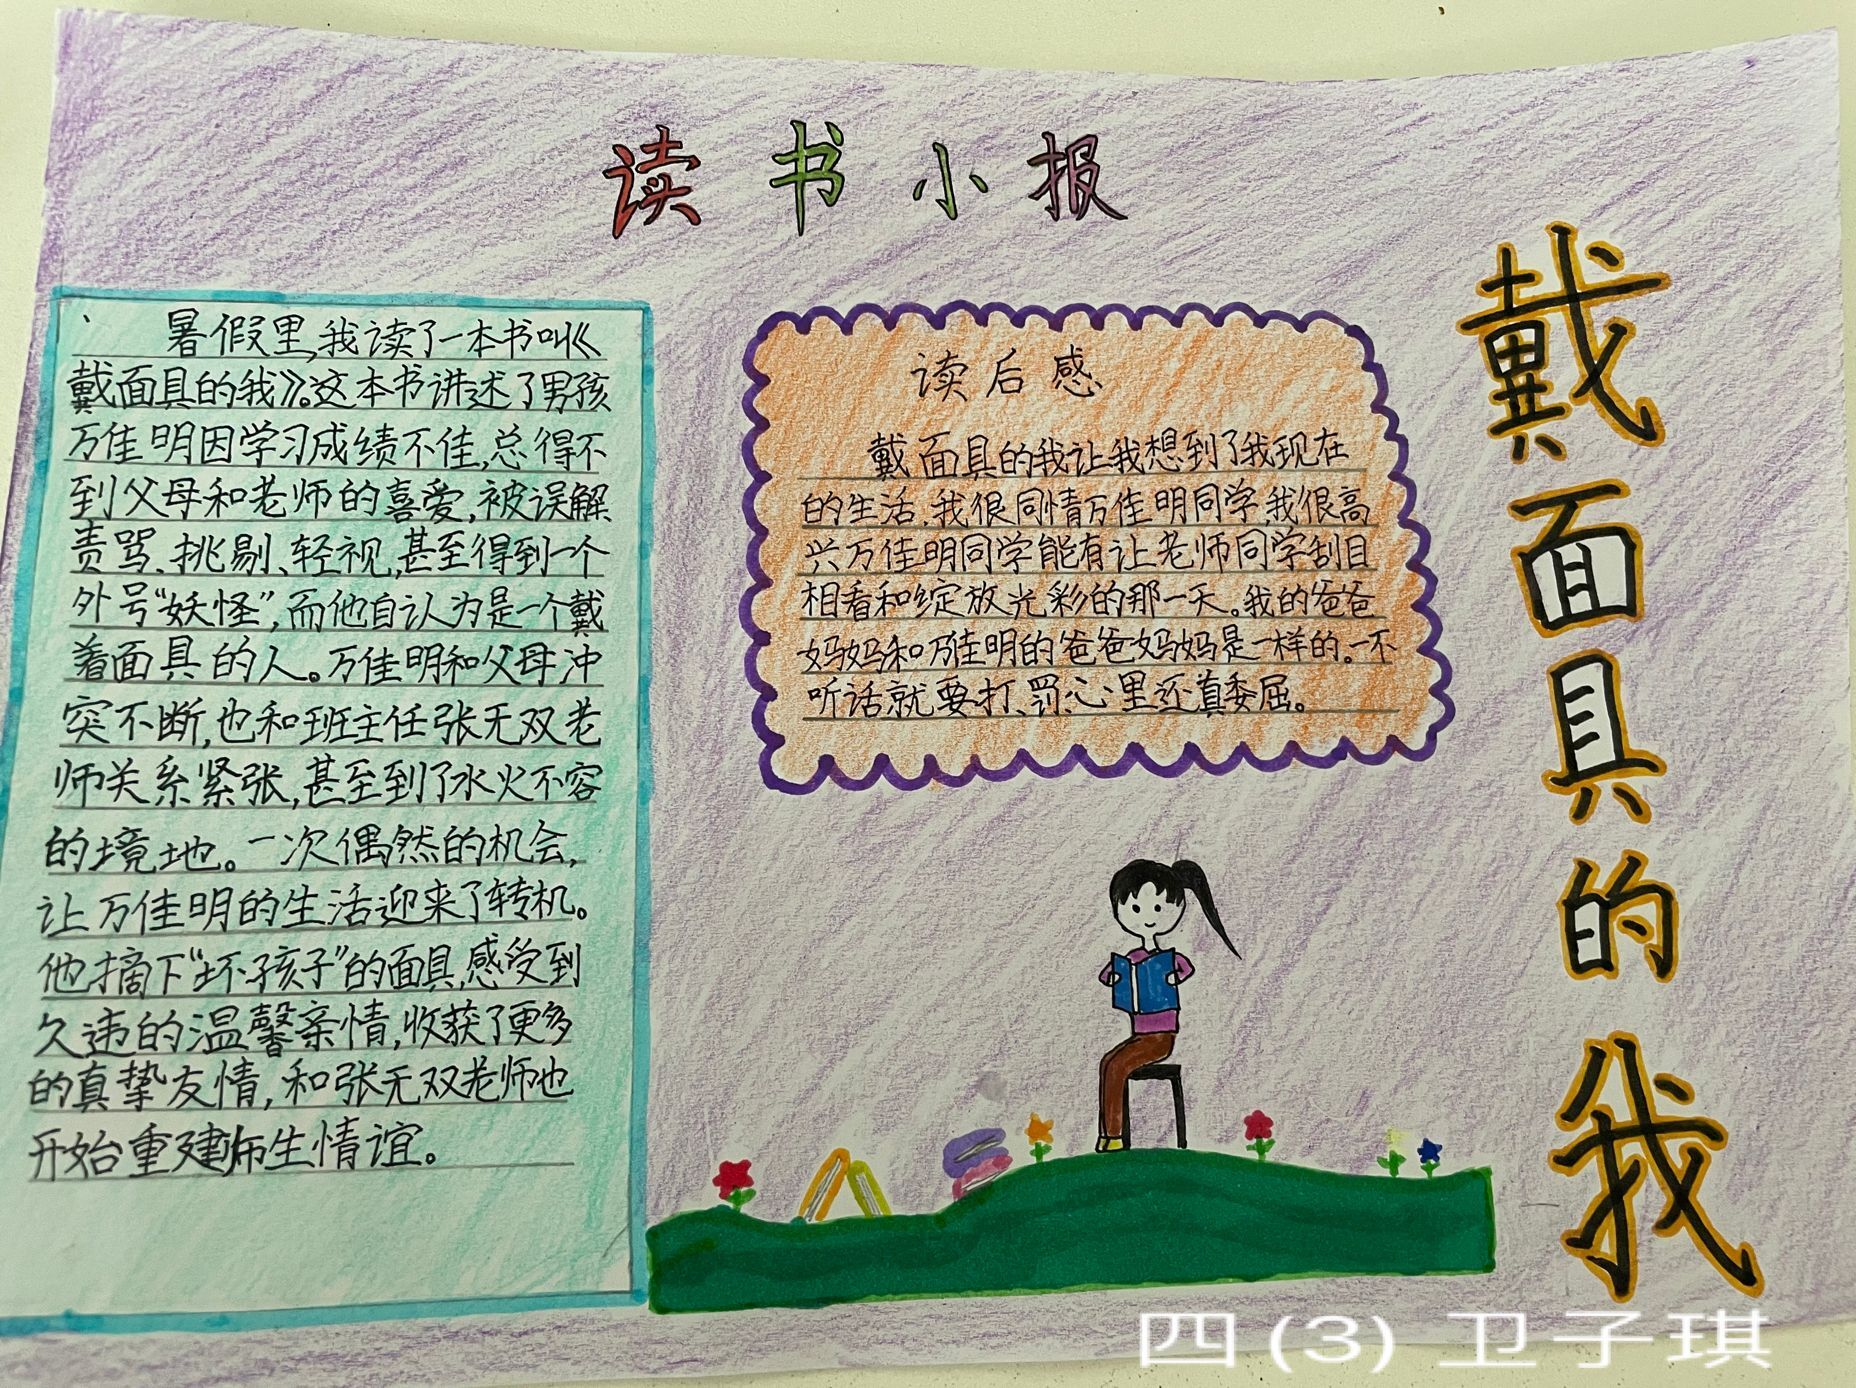 读书小报
暑假里,我读了一本书叫《
戴面具的我》。这本书讲述了男孩
万佳明因学习成绩不佳,总得不
到父母和老师的喜爱,被误解
责骂、挑剔、轻视,甚至得到一个
外号“妖怪”,而他自认为是一个戴
着面具的人。万佳明和父母冲
突不断,也和班主任张无双老
师关系紧张,甚至到了水火不容
的境地。一次偶然的机会,
让万佳明的生活迎来了转机。
他摘下“坏孩子”的面具,感受到
久违的温馨亲情,收获了更多
的真挚友情,和张无双老师也
开始重建师生情谊。
读后感
戴面具的我让我想到了我现在
的生活,我很同情万佳明同学,我很高
兴万佳明同学能有让老师同学刮目
相看和绽放光彩的那一天。我的爸爸
妈妈和万佳明的爸爸妈妈是一样的。一不
听话就要打、罚、心里还真委屈。
戴面具的我
四(3)卫子琪